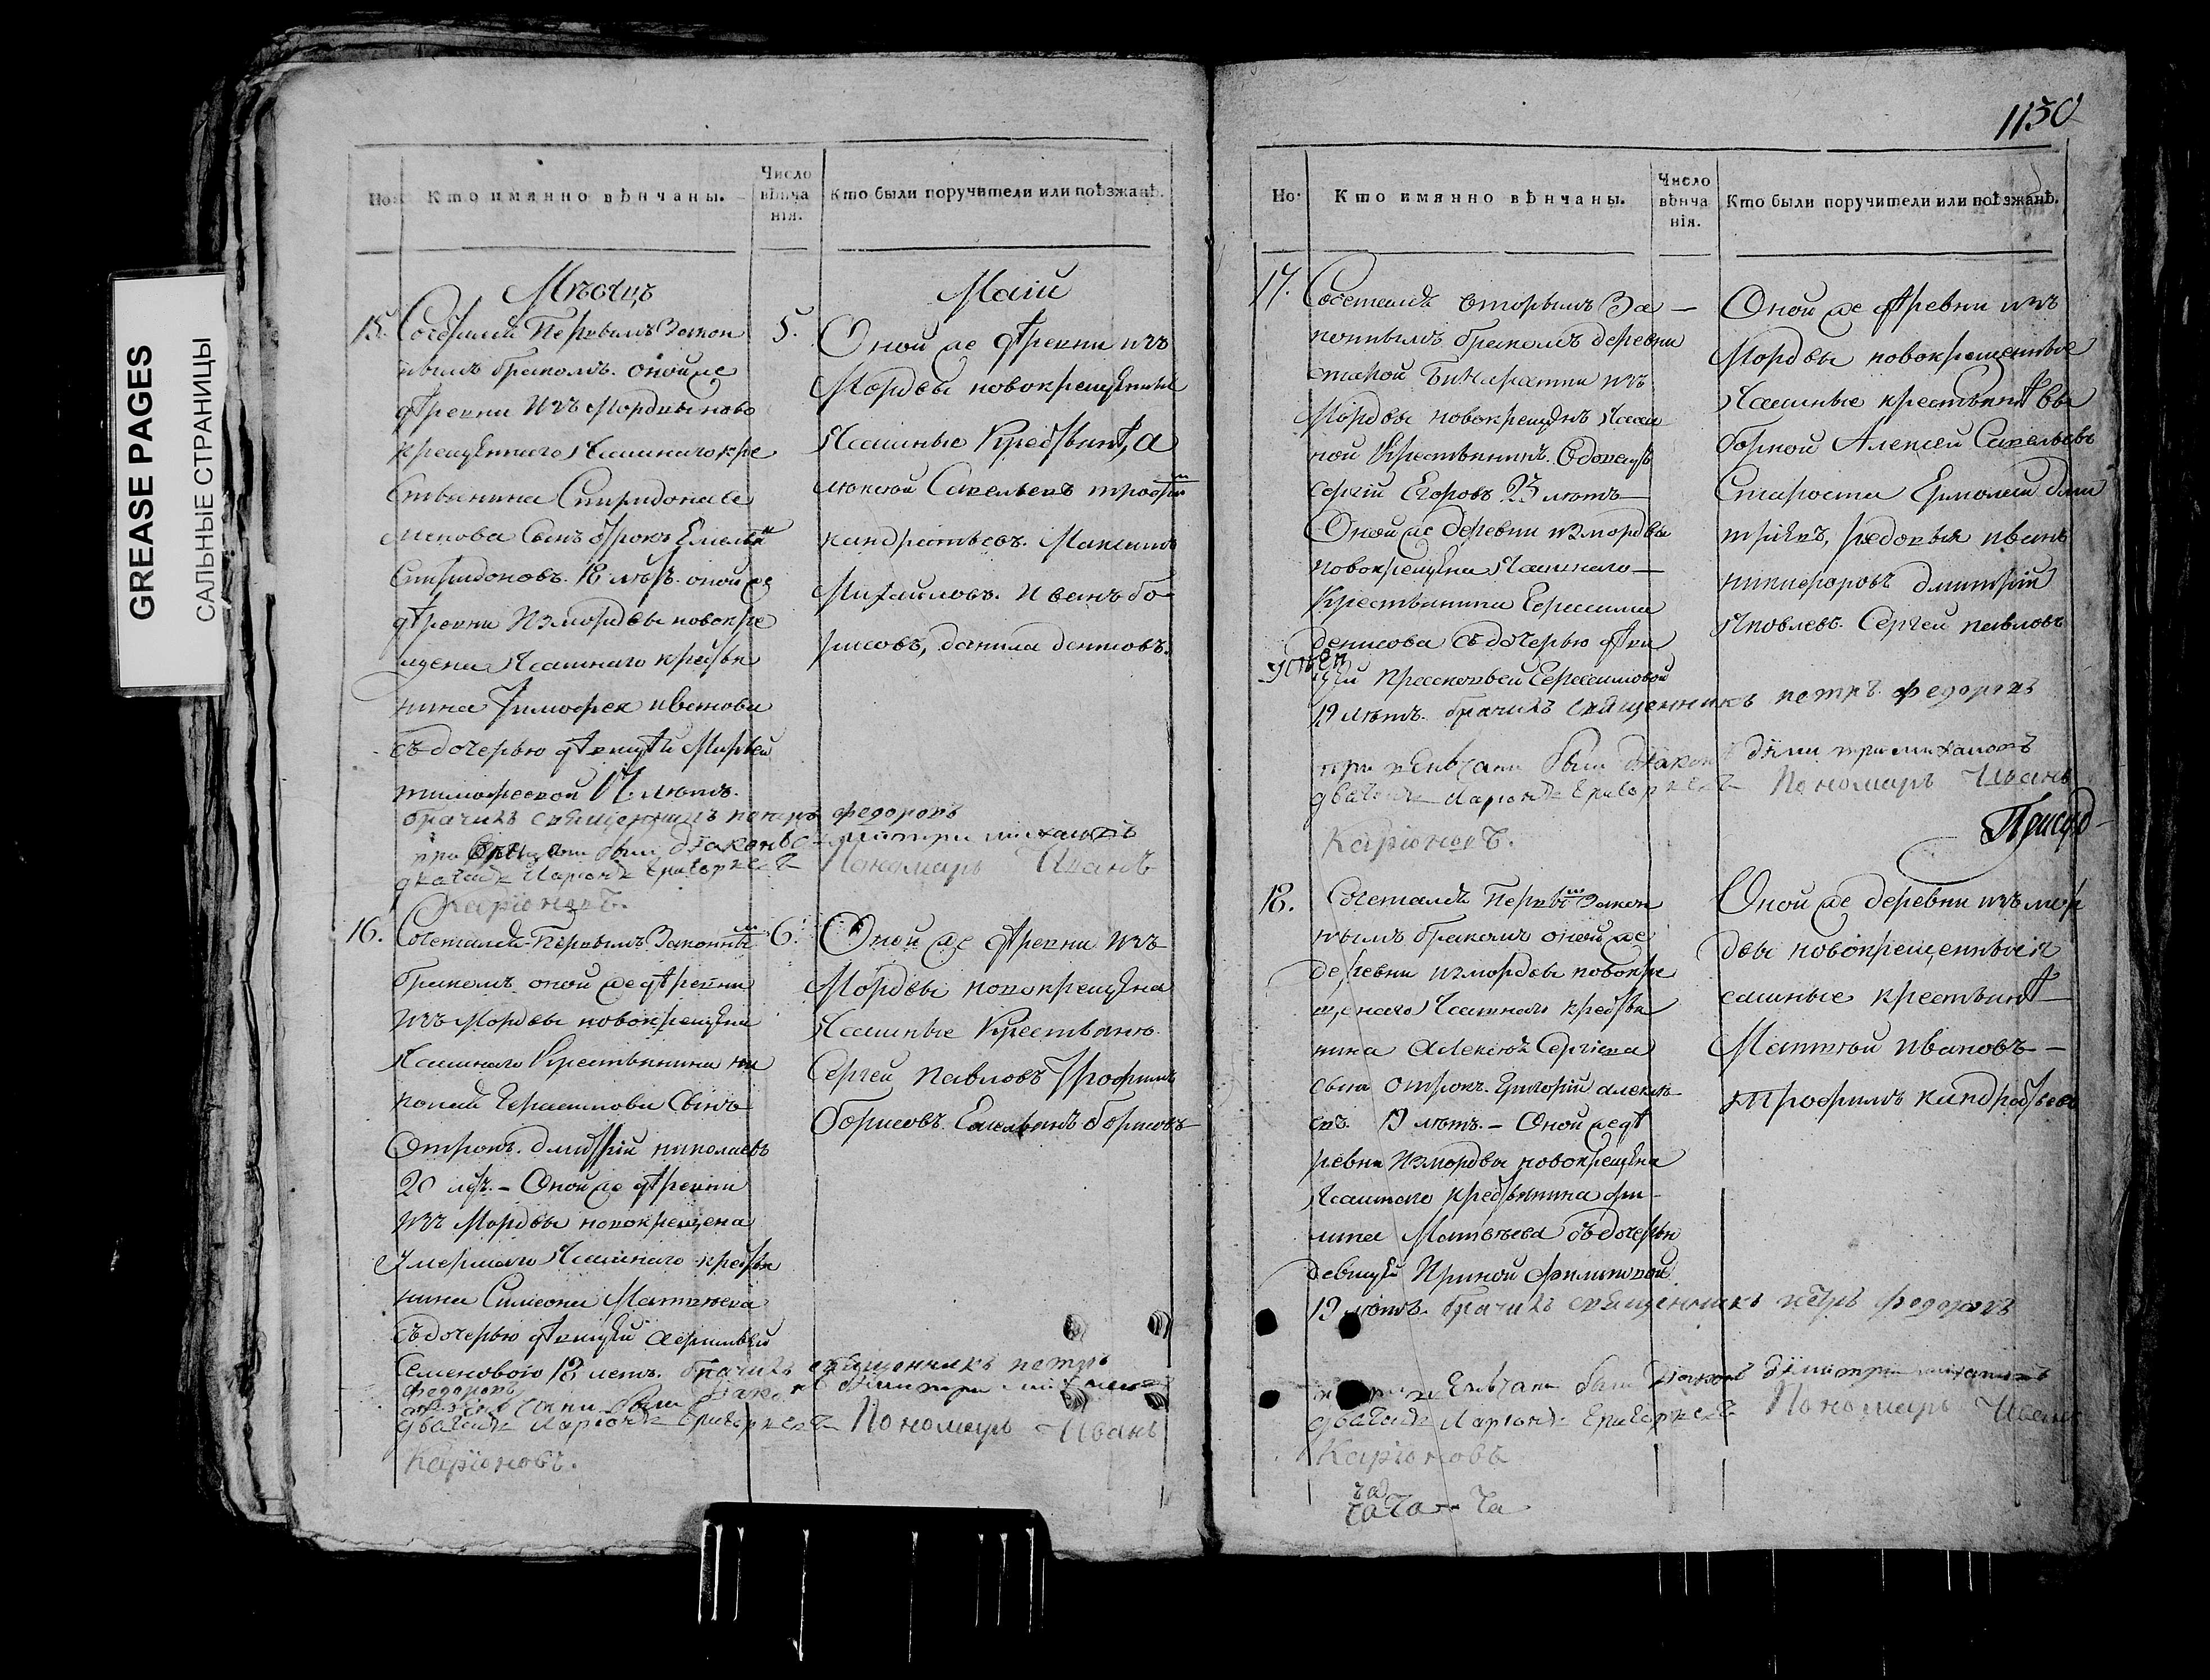 GREASE PAGES
САЛЬНЫЕ СТРАНИЦЫ
Но: Кто имянно вѣнчаны. Число вѣнча нія. Кто были поручители или поѣзжанѣ.
Мѣсецъ
15. Первымъ Закон
нымъ бракомъ. оной же
деревни изъ Мордвы ново
крещеннаго Ясашнаго кре
стьянина Спиридона Се
менова Сынъ отрокъ Емельян
Спиридоновъ. 18 лѣтъ. оной же
деревни изморды новокре
щена Ясашнаго крестья
нина Тимофея иванова
съ дочерью девицей Марьей
тимофеевой 17. лѣтъ.
брачилъ священникъ петръ федоровъ
при были дїаконъ димитри михаиловъ
дьячокъ Ларионъ Григорьевъ Пономарь Иванъ
Каріоновъ.
5.
Маій
Оной же деревни изъ
Мордвы новокрещенныя
Ясашные Крестьянѣ, а
лексѣй Савельевъ трофим
кандратьевъ. Максимъ
Михайловъ. Иванъ бо
рисовъ, данила денисовъ.
16. Сочетался Первымъ Законным
бракомъ оной же деревни
изъ Мордвы новокрещена
Ясашнаго Крестьянина ни
колай Герасимова Сынъ
Отрокъ. дмитрій николаевъ
20 лѣтъ. – Оной же деревни
изъ Мордвы новокрещена
умершаго Ясашнаго крестья
нина Симеона Матвѣева
съ дочерью девицей
Семеновою 18 летъ. брачилъ священникъ петръ
федоровъ
были дїаконъ димитри михаиловъ
дьячокъ Ларионъ Григорьевъ Пономарь Иванъ
Каріоновъ.
6.
Оной же деревни изъ
Мордвы новокрещена
Ясашные Крестьянѣ
Сергей Павловъ Трофимъ
борисовъ. Емельянъ борисовъ
1130
Но: Кто имянно вѣнчаны. Число вѣнча нія. Кто были поручители или поѣзжанѣ.
17. Сочетался вторымъ За
коннымъ бракомъ деревни
старой изъ
Мордвы новокрещенъ Ясаш
ной Крестьянинъ. Вдовецъ
Сергій Егоровъ 23 лѣтъ
Оной же деревни изморды
новокрещена Ясашнаго
Крестьянина Герасима
денисова съ дочерью деви
цей Прасковьей Герасимовой
19 лѣтъ. брачилъ священникъ петръ федоровъ
при венчани были дїаконъ димитри михаиловъ
дьячокъ Ларионъ Григорьевъ Пономарь Иванъ
Каріоновъ.
Оной же деревни изъ
Мордвы новокрещенные
Ясашные крестьянѣ вы
борной Алексей Савельевъ
Староста Ермолай дми
тріевъ, рядовыя иванъ
никифоровъ дмитрій
Яковлевъ. Сергей павловъ
18. Сочетался Первым Закон
нымъ бракомъ оной же
деревни изморды новокре
щенаго Ясашнаго крестья
нина Алексѣя Сергіева
сына отрокъ. Григорій алексѣ
евъ. 19 лѣтъ. – Оной же де
ревни изморды новокрещена
Ясашнаго крестьянина фи
липа Матвѣева съ дочерью
девицей Ириной филиповой
19 лѣтъ. брачилъ священникъ петръ федоровъ
венчани были дїаконъ димитри михаиловъ
дьячокъ Ларионъ Григорьевъ Пономарь Иванъ
Каріоновъ
Оной же деревни изъ мор
двы новокрещенныя я
сашные крестьянѣ
Матвѣй ивановъ
трофимъ кандратьевъ